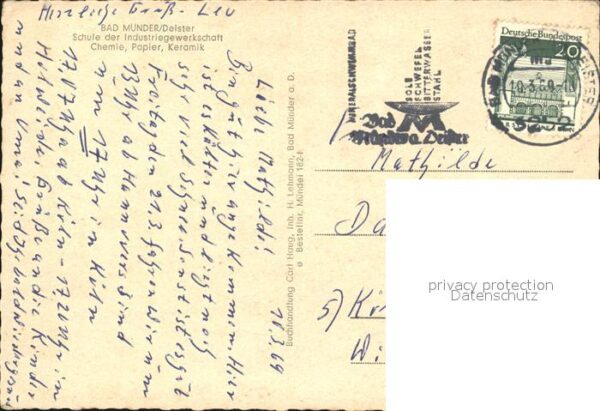 BAD MÜNDER/Deister
Schule der Industriegewerkschaft
Chemie, Papier, Keramik
10.3.69
Liebe Mathilde!
Bin gut hier angekommen. Hier
ist es kälter und liegt noch
sehr viel Schnee. Sonst ist es gut
Freitag den 21.3. fahren wir um
13 Uhr ab Hannover sind
um 17 Uhr in Köln
17.07 Uhr ab Köln - 17.20 Uhr in
Grüße an die Kinder
und an Oma!
Herzliche Grüße Leo
Buchhandlung Carl Haag, Inh. H. Lehmann, Bad Münder a. D.
Bestellnr. Münder 182
MINERALSCHWEFELBAD
SOLE
SCHWEFEL
BITTERWASSER
STAHL
Bad
Münder a. Deister
Deutsche Bundespost
20
BAD MÜNDER
10.3.69
3252
Mathilde
5) Kö
privacy protection
Datenschutz